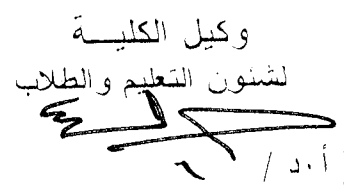 وكيل الكليـــة
لشئون التعليم والطلاب
أ.د /